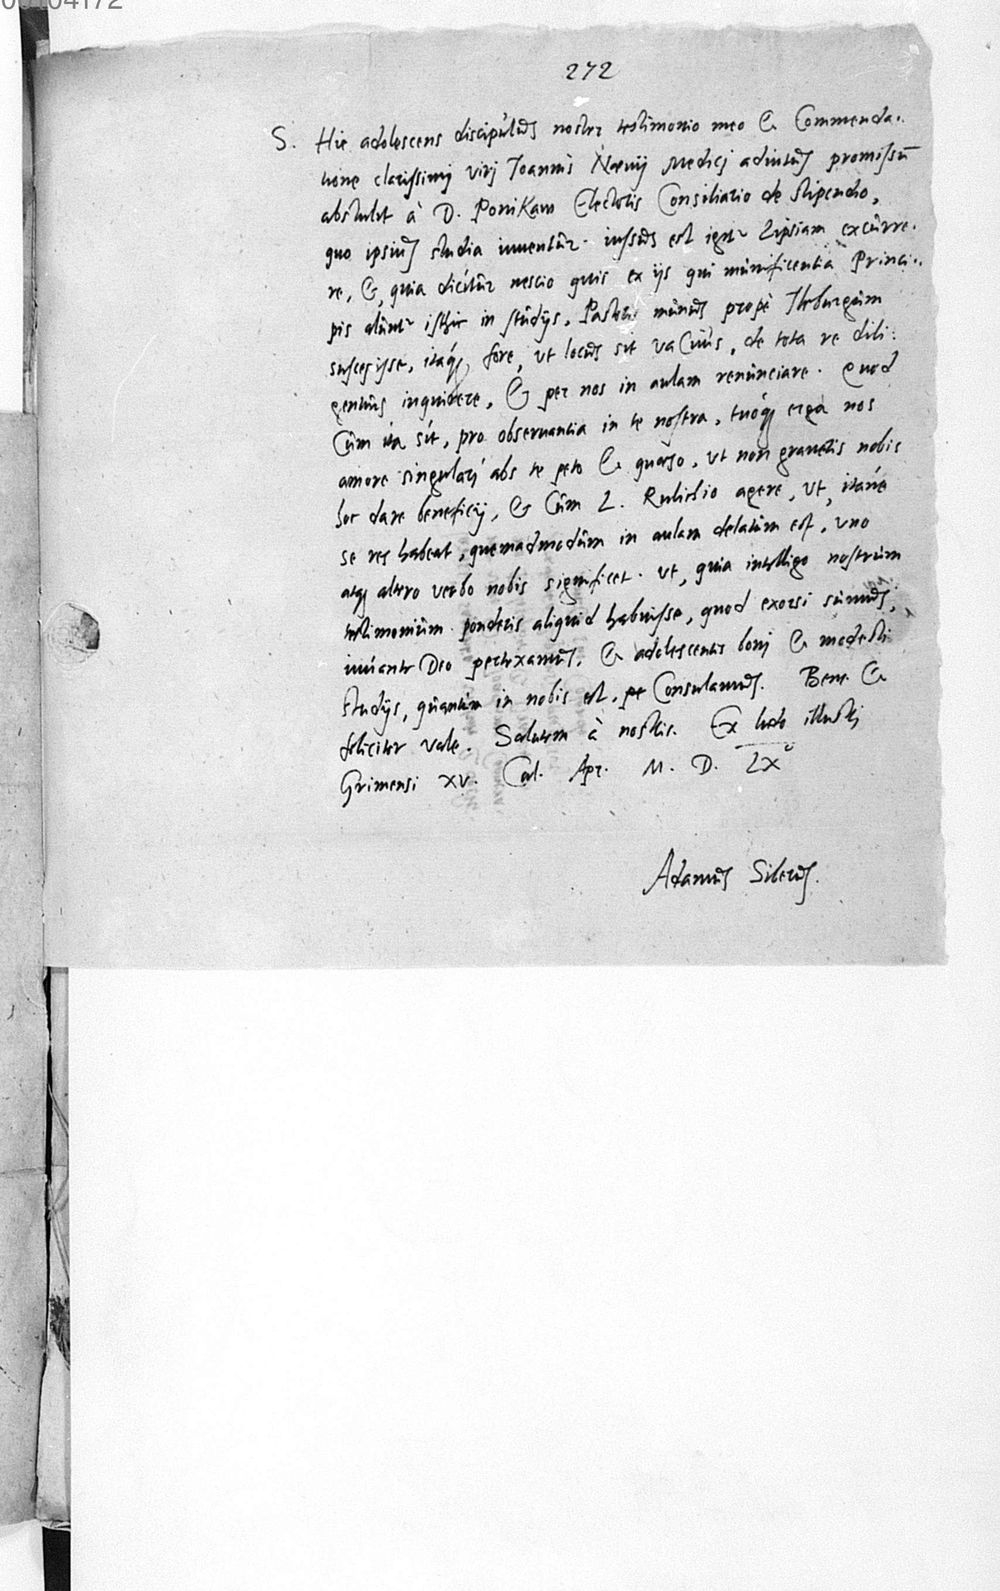 00104172
272
S. Hic adolescens discipulus noster testimonio meo & Commenda-
tione clarissimi viri Joannis Nævij Medici adiutus promissū
abstulit à D. Ponikaw Electoris Consiliario de stipendio,
quo ipsius studia iuuentur. iussus est igitur Lipsiam excurre-
re, &, quia dicitur nescio quis ex ijs qui munificentia Princi-
pis aluntur istic in studijs, Pastoris munus prope
suscepisse, itaq; fore, vt locus sit vacuus, de tota re dili-
gentius inquirere, & per nos in aulam renunciare. Quod
Cum ita sit, pro obseruantia in te nostra, tuoq; erga nos
amore singulari abs te peto & quæso, vt non graueris nobis
hoc dare beneficij, & Cum L. agere, vt, itane
se res habeat, quemadmodum in aulam delatum est, vno
atq; altero verbo nobis significet. Vt, quia intelligo nostrum
testimonium ponderis aliquid habuisse, quod exorsi sumus,
iuuante Deo pertexamus, & adolescentis boni & modesti
studijs, quantum in nobis est, Consulamus. Bene &
feliciter vale. Salutem à nostris. Ex ludo illustri
Grimensi XV. Cal. Apr. M. D. LX°
Adamus Siberus.